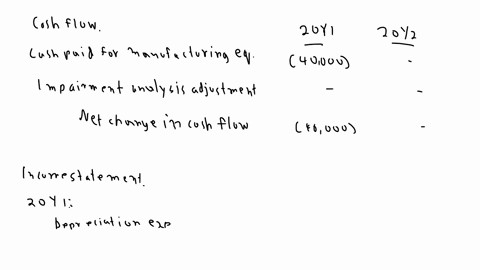 Cash flow.
20Y1 20Y2
Cash paid for manufacturing eq. (40,000) -
Impairment analysis adjustment - -
Net change in cash flow (40,000) -
Income statement.
20Y1:
Depreciation exp